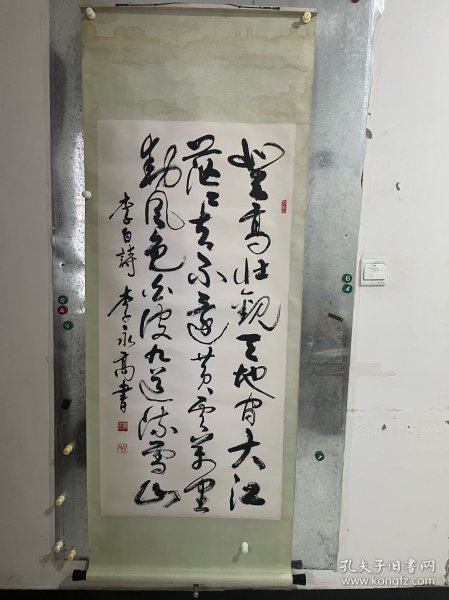 登高壮观天地间大江
茫茫去不还黄云万里
动风色白波九道流雪山
李白詩 李永高書
孔夫子旧书网
www.kongfz.com